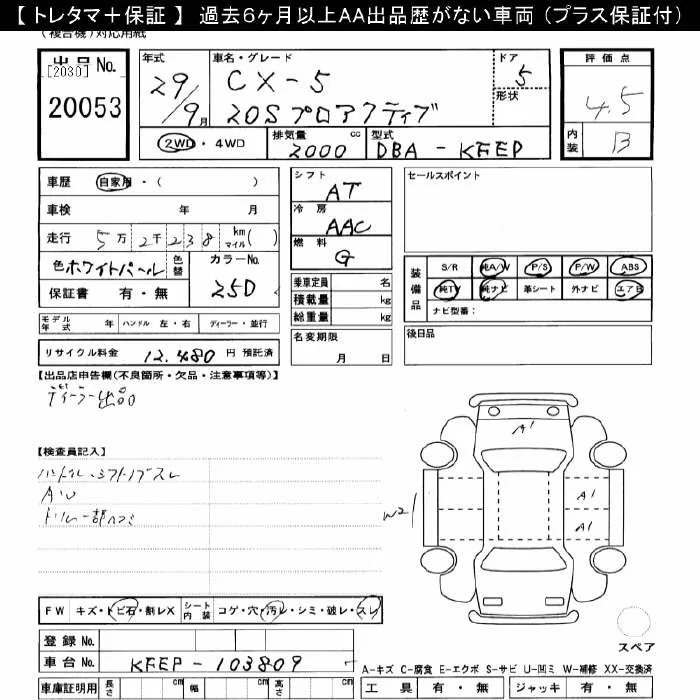 【 トレタマ＋保証 】 過去6ヶ月以上AA出品歴がない車両 (プラス保証付)
(複合機)対応用紙
出品 No.
[2030]
20053
年式 29/9月
車名・グレード CX-5
20S プロアクティブ
ドア 5
形状
評価点 4.5
内装 B
2WD・4WD
排気量 2000 cc
型式 DBA - KFEP
車歴 自家用・( )
車検 年 月
走行 5万2千238 km マイル ( )
色 ホワイトパール 色替
カラーNo. 25D
保証書 有・無
シフト AT
冷房 AAC
燃料 G
セールスポイント
装備品
S/R 純A/W P/S P/W ABS
純TV 純ナビ 革シート 外ナビ エアB
ナビ型番:
乗車定員 名
積載量 kg
総重量 kg
モデル年式 年 ハンドル 左・右 ディーラー・並行
名変期限 月 日
後日品
リサイクル料金 12,480 円 預託済
【出品店申告欄(不良箇所・欠品・注意事項等)】
ディーラー出品
【検査員記入】
ハンドル・シフトノブスレ
AU
トリム一部ヘコミ
A1
A1
A1
W2
FW キズ・トビ石・割レX
シート内装 コゲ・穴・汚レ・シミ・破レ・スレ
スペア
登録 No.
車台 No. KFEP-103809
A-キズ C-腐食 E-エクボ S-サビ U-凹ミ W-補修 XX-交換済
車庫証明用 長さ cm 幅 cm 高さ cm
工具 有・無 ジャッキ 有・無